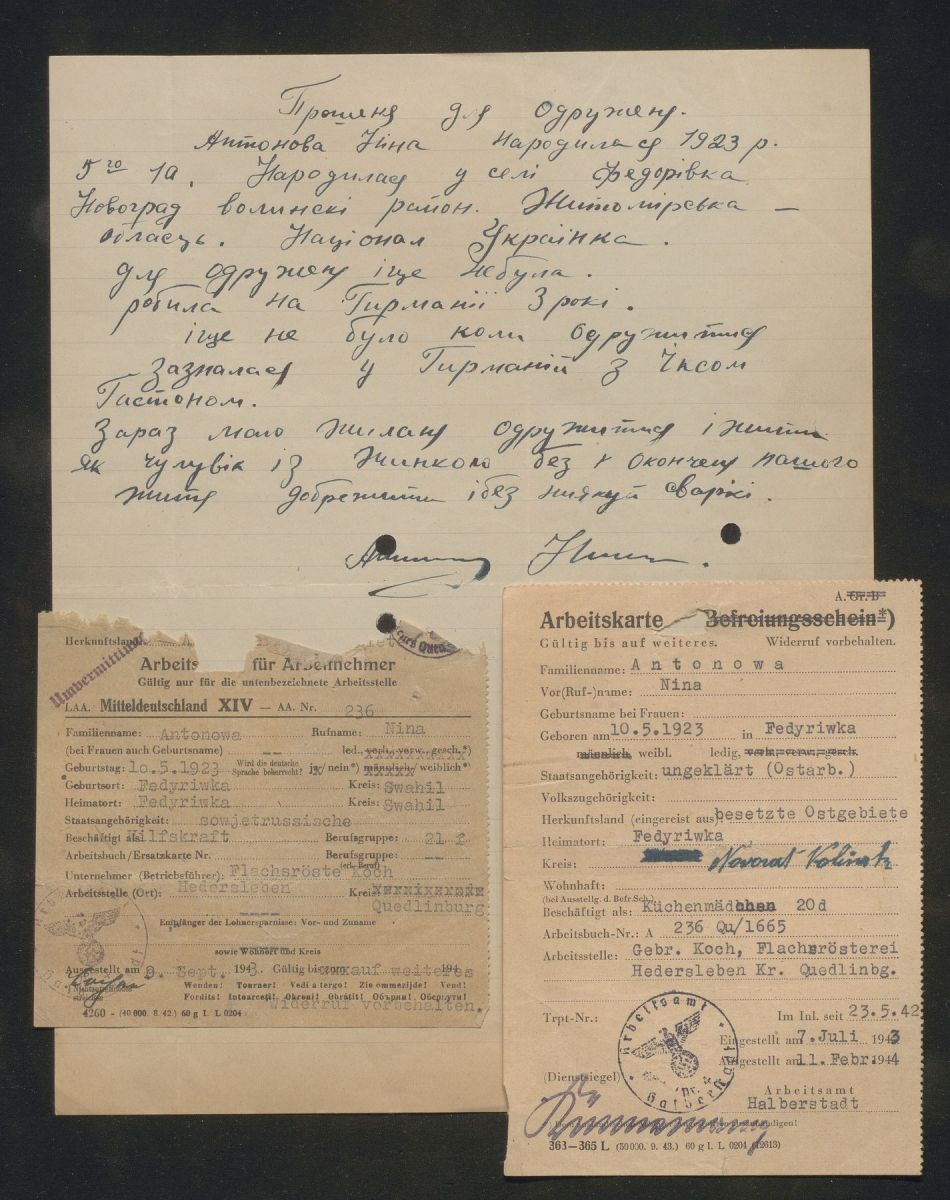 Прошеня для одруженя.
Антонова Ніна народилася 1923 р.
5го 10. Народилася у селі Федорівка
Новоград волинскі район. Житомірська –
область. Націонал Українка.
для одруженя іще небула.
робила на Гирманії 3 рокі.
іще не було коли одружитися
Зазналася у Гирманій з
Гастоном.
Зараз маю жиланя одружитися і жити
як чулувік із жинкою без окончея нашого
житя добрежити ібез ниякуй сваркі.
Herkunftsland
Arbeits für Arbeitnehmer
Gültig nur für die untenbezeichnete Arbeitsstelle
LAA. Mitteldeutschland XIV — AA. Nr. 236
Familienname: Antonowa Rufname: Nina
(bei Frauen auch Geburtsname) -- led., verh., verw., gesch.*)
Geburtstag: 10.5.1923 Wird die deutsche Sprache beherrscht? ja/nein*) männlich/weiblich*)
Geburtsort: Fedyriwka Kreis: Swahil
Heimatort: Fedyriwka Kreis: Swahil
Staatsangehörigkeit: sowjetrussische
Beschäftigt als Hilfskraft Berufsgruppe: 21
Arbeitsbuch/Ersatzkarte Nr. Berufsgruppe: --
(erl. Beruf)
Unternehmer (Betriebsführer): Flachsröste Koch
Arbeitsstelle (Ort): Hedersleben Kreis:
Quedlinburg
Empfänger der Lohnersparnisse: Vor- und Zuname
sowie Wohnort und Kreis
Ausgestellt am 9. Sept. 1943. Gültig bis zum auf weiteres 194
Wenden! Tourner! Vedi a tergo! Zie ommezijde! Vend!
Fordíts! Intoarceţi! Okreni! Obrátit! Обърни! Обернути!
Widerruf vorbehalten.
4260 - (40 000. 8. 42) 60 g I. L 0204
A. Gr. B
Arbeitskarte Befreiungsschein*)
Gültig bis auf weiteres. Widerruf vorbehalten.
Familienname: Antonowa
Vor(Ruf-)name: Nina
Geburtsname bei Frauen:
Geboren am 10.5.1923 in Fedyriwka
männlich, weibl. ledig, verh., verw., gesch.
Staatsangehörigkeit: ungeklärt (Ostarb.)
Volkszugehörigkeit:
Herkunftsland (eingereist aus) besetzte Ostgebiete
Heimatort: Fedyriwka
Kreis: Novorat Volinsk
Wohnhaft:
(bei Ausstellg. d. Befr.Sch.)
Beschäftigt als: Küchenmädchen 20d
Arbeitsbuch-Nr.: A 236 Qu/1665
Arbeitsstelle: Gebr. Koch, Flachsrösterei
Hedersleben Kr. Quedlinbg.
Trpt-Nr.: Im Inl. seit 23.5.42
Arbeitsamt
Eingestellt am 7. Juli 1943
Ausgestellt am 11. Febr. 1944
(Dienstsiegel)
Arbeitsamt
Halberstadt
363—365 L (50000. 9. 43.) 60 g I. L 0204 (12613)